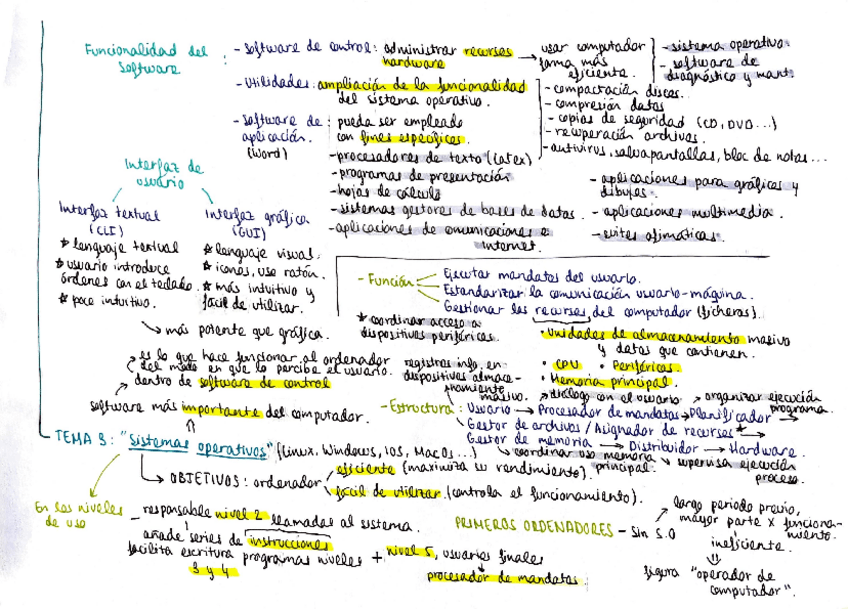 Funcionalidad del
Software :
- Software de control: administrar recursos
hardware
→ usar computador
forma más
eficiente.
- sistema operativo
- software de
diagnóstico y mant.
- Utilidades: ampliación de la funcionalidad
del sistema operativo.
- compactación discos.
- compresión datos
- copias de seguridad (CD, DVD...)
- recuperación archivos.
- antivirus, salvapantallas, bloc de notas...
- Software de :
aplicación.
(word)
pueda ser empleado
con fines específicos.
- procesadores de texto (latex)
- programas de presentación
- hojas de cálculo
- sistemas gestores de bases de datos.
- aplicaciones de comunicaciones e
internet.
- aplicaciones para gráficos y
dibujos.
- aplicaciones multimedia.
- suites ofimáticas.
Interfaz de
usuario
Interfaz textual
(CLI)
* lenguaje textual
* usuario introduce
órdenes con el teclado.
* poco intuitivo.
↳ más potente que gráfica.
Interfaz gráfica
(GUI)
* lenguaje visual.
* iconos, uso ratón.
* más intuitivo y
fácil de utilizar.
- Función
Ejecutar mandatos del usuario.
Estandarizar la comunicación usuario-máquina.
Gestionar los recursos del computador (ficheros).
* coordinar acceso a
dispositivos periféricos.
• Unidades de almacenamiento masivo
y datos que contienen.
• CPU • Periféricos.
• Memoria principal.
es lo que hace funcionar al ordenador
del modo en que lo percibe el usuario.
dentro de software de control
software más importante del computador.
registras info. en
dispositivos almace-
namiento
masivo.
→ diálogo con el usuario
→ organizar ejecución
programa.
- Estructura: Usuario → Procesador de mandatos → Planificador →
Gestor de archivos / Asignador de recursos * →
Gestor de memoria → Distribuidor → Hardware.
↳ coordinar uso memoria
principal.
↳ supervisa ejecución
proceso.
TEMA 3: "Sistemas operativos" (Linux, Windows, IOS, MacOS...)
↳ OBJETIVOS: ordenador
eficiente (maximiza su rendimiento).
fácil de utilizar (controla el funcionamiento).
En los niveles
de uso
- responsable nivel 2 llamadas al sistema.
añade series de instrucciones
facilita escritura programas niveles
3 y 4
+ nivel 5, usuarios finales
procesador de mandatos
PRIMEROS ORDENADORES - sin S.O
largo periodo previo,
mayor parte x funciona-
miento.
ineficiente.
figura "operador de
computador".